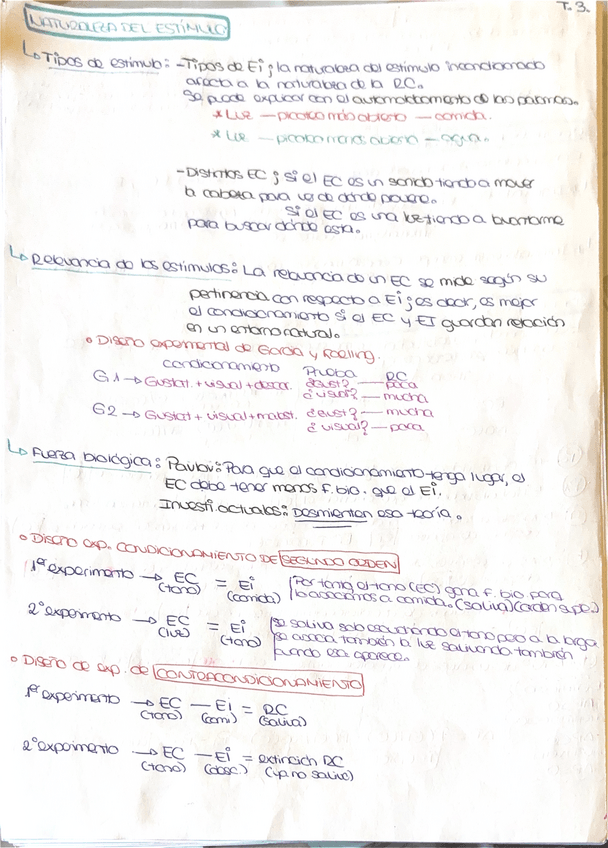 T.3.
NATURALEZA DEL ESTÍMULO
Tipos de estimulo: - Tipos de Ei; la naturaleza del estimulo incondicionado
afecta a la naturaleza de la RC.
Se puede explicar con el automoldeamiento de las palomas.
* Luz — picoteo más abierto — comida.
* Luz — picoteo menos abierto — agua.
- Distintos EC; si el EC es un sonido tiendo a mover
la cabeza para ver de donde proviene.
Si el EC es una luz tiendo a levantarme
para buscar dónde esta.
Relevancia de los estímulos: La relevancia de un EC se mide según su
pertinencia con respecto a Ei; es decir, es mejor
el condicionamiento si el EC y EI guardan relación
en un entorno natural.
• Diseño experimental de Garcia y Koelling.
condicionamiento Prueba RC
G1 → Gustat. + visual + descar. ¿Gust? — poca
¿visual? — mucha
G2 → Gustat + visual + malest. ¿Gust? — mucha
¿visual? — poca
Fuerza biológica: Pavlov: Para que el condicionamiento tenga lugar, el
EC debe tener menos f. bio. que el Ei.
Investi. actuales: Desmienten esa teoría.
• Diseño exp. CONDICIONAMIENTO DE SEGUNDO ORDEN
1er experimento → EC = Ei Por tanto, el tono (EC) gana f. bio para
(tono) (comida) lo asociamos a comida. (saliva) (orden supe.)
2º experimento → EC = Ei se saliva solo escuchando el tono pero a la larga
(luz) (tono) se asocia también la luz salivando también
cuando esa aparece.
• Diseño de exp. de CONTRACONDICIONAMIENTO
1er experimento → EC — Ei = RC
(tono) (comi) (saliva)
2º experimento → EC — Ei = extincich RC
(tono) (desc.) (ya no saliva)